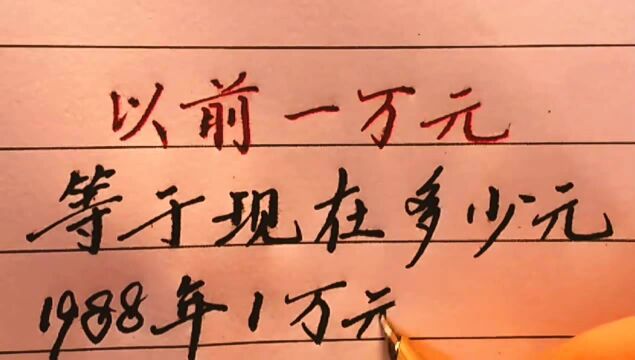 以前一万元
等于现在多少元
1988年1万元